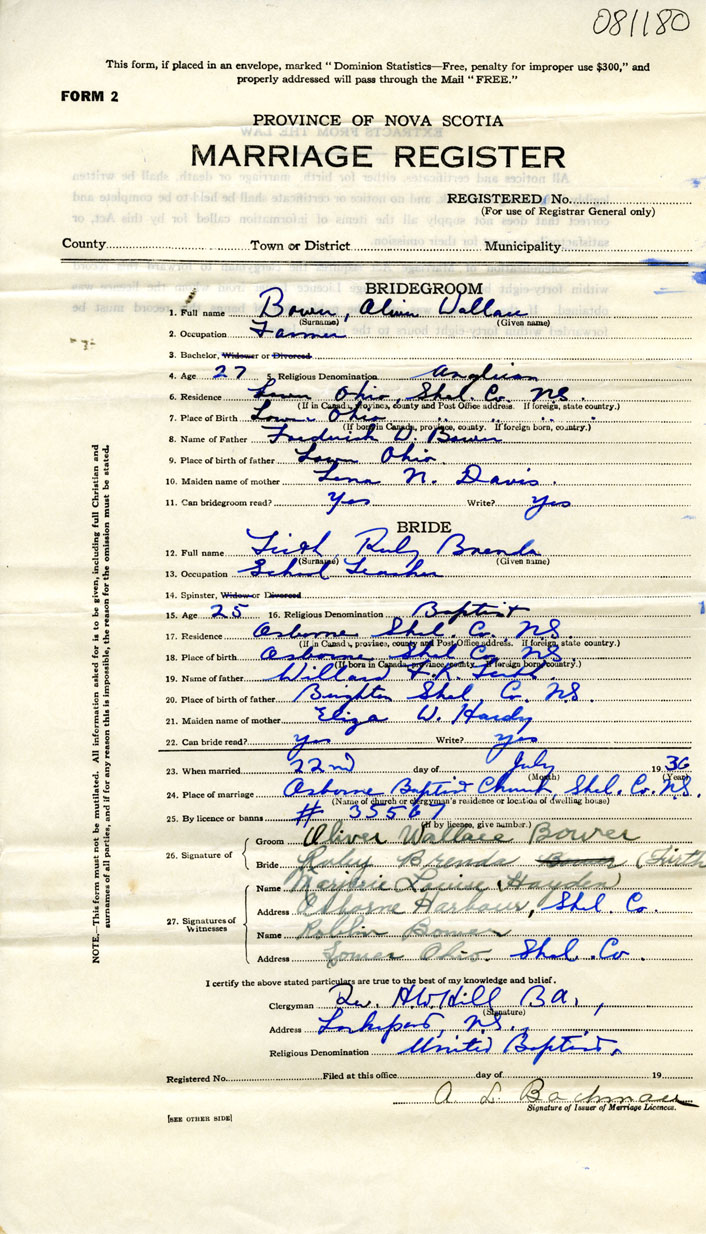 081180
This form, if placed in an envelope, marked "Dominion Statistics—Free, penalty for improper use $300," and
properly addressed will pass through the Mail "FREE."
FORM 2
PROVINCE OF NOVA SCOTIA
MARRIAGE REGISTER
REGISTERED No.
(For use of Registrar General only)
County Town or District Municipality
BRIDEGROOM
1. Full name Bower, Oliver Wallace
(Surname) (Given name)
2. Occupation Farmer
3. Bachelor, Widower or Divorced
4. Age 27 5. Religious Denomination Anglican
6. Residence Lower Ohio, Shel. Co. N.S.
(If in Canada, province, county and Post Office address. If foreign, state country.)
7. Place of Birth Lower Ohio " " "
(If born in Canada, province, county. If foreign born, country.)
8. Name of Father Frederick D. Bower
9. Place of birth of father Lower Ohio
10. Maiden name of mother Lena N. Davis
11. Can bridegroom read? Yes Write? Yes
BRIDE
12. Full name Firth Ruby Brenda
(Surname) (Given name)
13. Occupation School Teacher
14. Spinster, Widow or Divorced
15. Age 25 16. Religious Denomination Baptist
17. Residence Osborne Shel. Co. N.S.
(If in Canada, province, county and Post Office address. If foreign, state country.)
18. Place of birth Osborne Shel. Co. N.S.
(If born in Canada, province, county. If foreign born, country.)
19. Name of father Willard Firth
20. Place of birth of father Brighton Shel. Co. N.S.
21. Maiden name of mother Eliza W. Hardy
22. Can bride read? Yes Write? Yes
23. When married 22nd day of July 1936
(Month) (Year)
24. Place of marriage Osborne Baptist Church Shel. Co. N.S.
(Name of church or clergyman's residence or location of dwelling house)
25. By licence or banns # 35567
(If by licence, give number.)
26. Signature of Groom Oliver Wallace Bower
Bride Ruby Brenda Bower (Firth
27. Signatures of Witnesses Name Marjorie Louise Hayden
Address Osborne Harbour, Shel. Co.
Name Robbin Bower
Address Lower Ohio. Shel. Co.
I certify the above stated particulars are true to the best of my knowledge and belief.
Clergyman Rev. H.W. Hill B.A.,
(Signature)
Address Lockeport, N.S.
Religious Denomination United Baptist.
Registered No. Filed at this office day of 19
A. L. Bachman
Signature of Issuer of Marriage Licences.
[SEE OTHER SIDE]
NOTE.—This form must not be mutilated. All information asked for is to be given, including full Christian and
surnames of all parties, and if for any reason this is impossible, the reason for the omission must be stated.